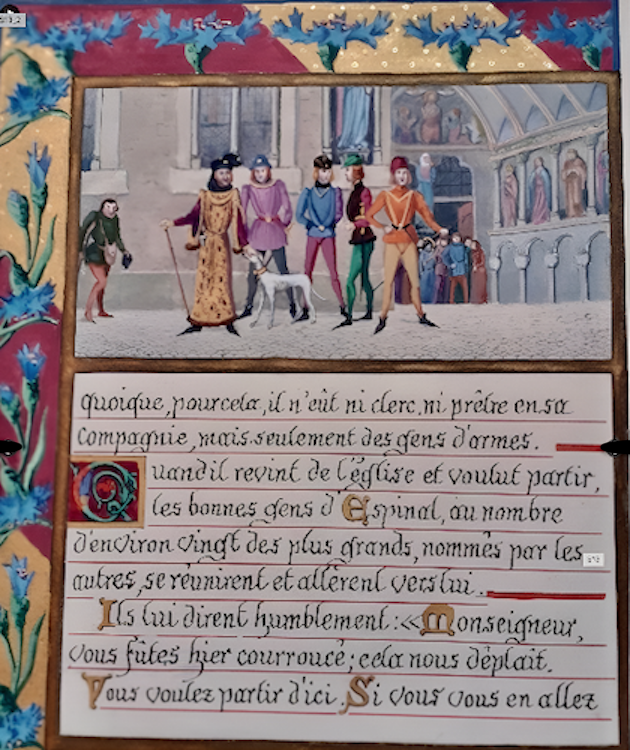 quoique, pour cela, il n'eût ni clerc, ni prêtre en sa
compagnie, mais seulement des gens d'armes.
Quand il revint de l'église et voulut partir,
les bonnes gens d'Espinal, au nombre
d'environ vingt des plus grands, nommés par les
autres, se réunirent et allèrent vers lui.
Ils lui dirent humblement : « Monseigneur,
vous fûtes hier courroucé ; cela nous déplait.
Vous voulez partir d'ici. Si vous vous en allez